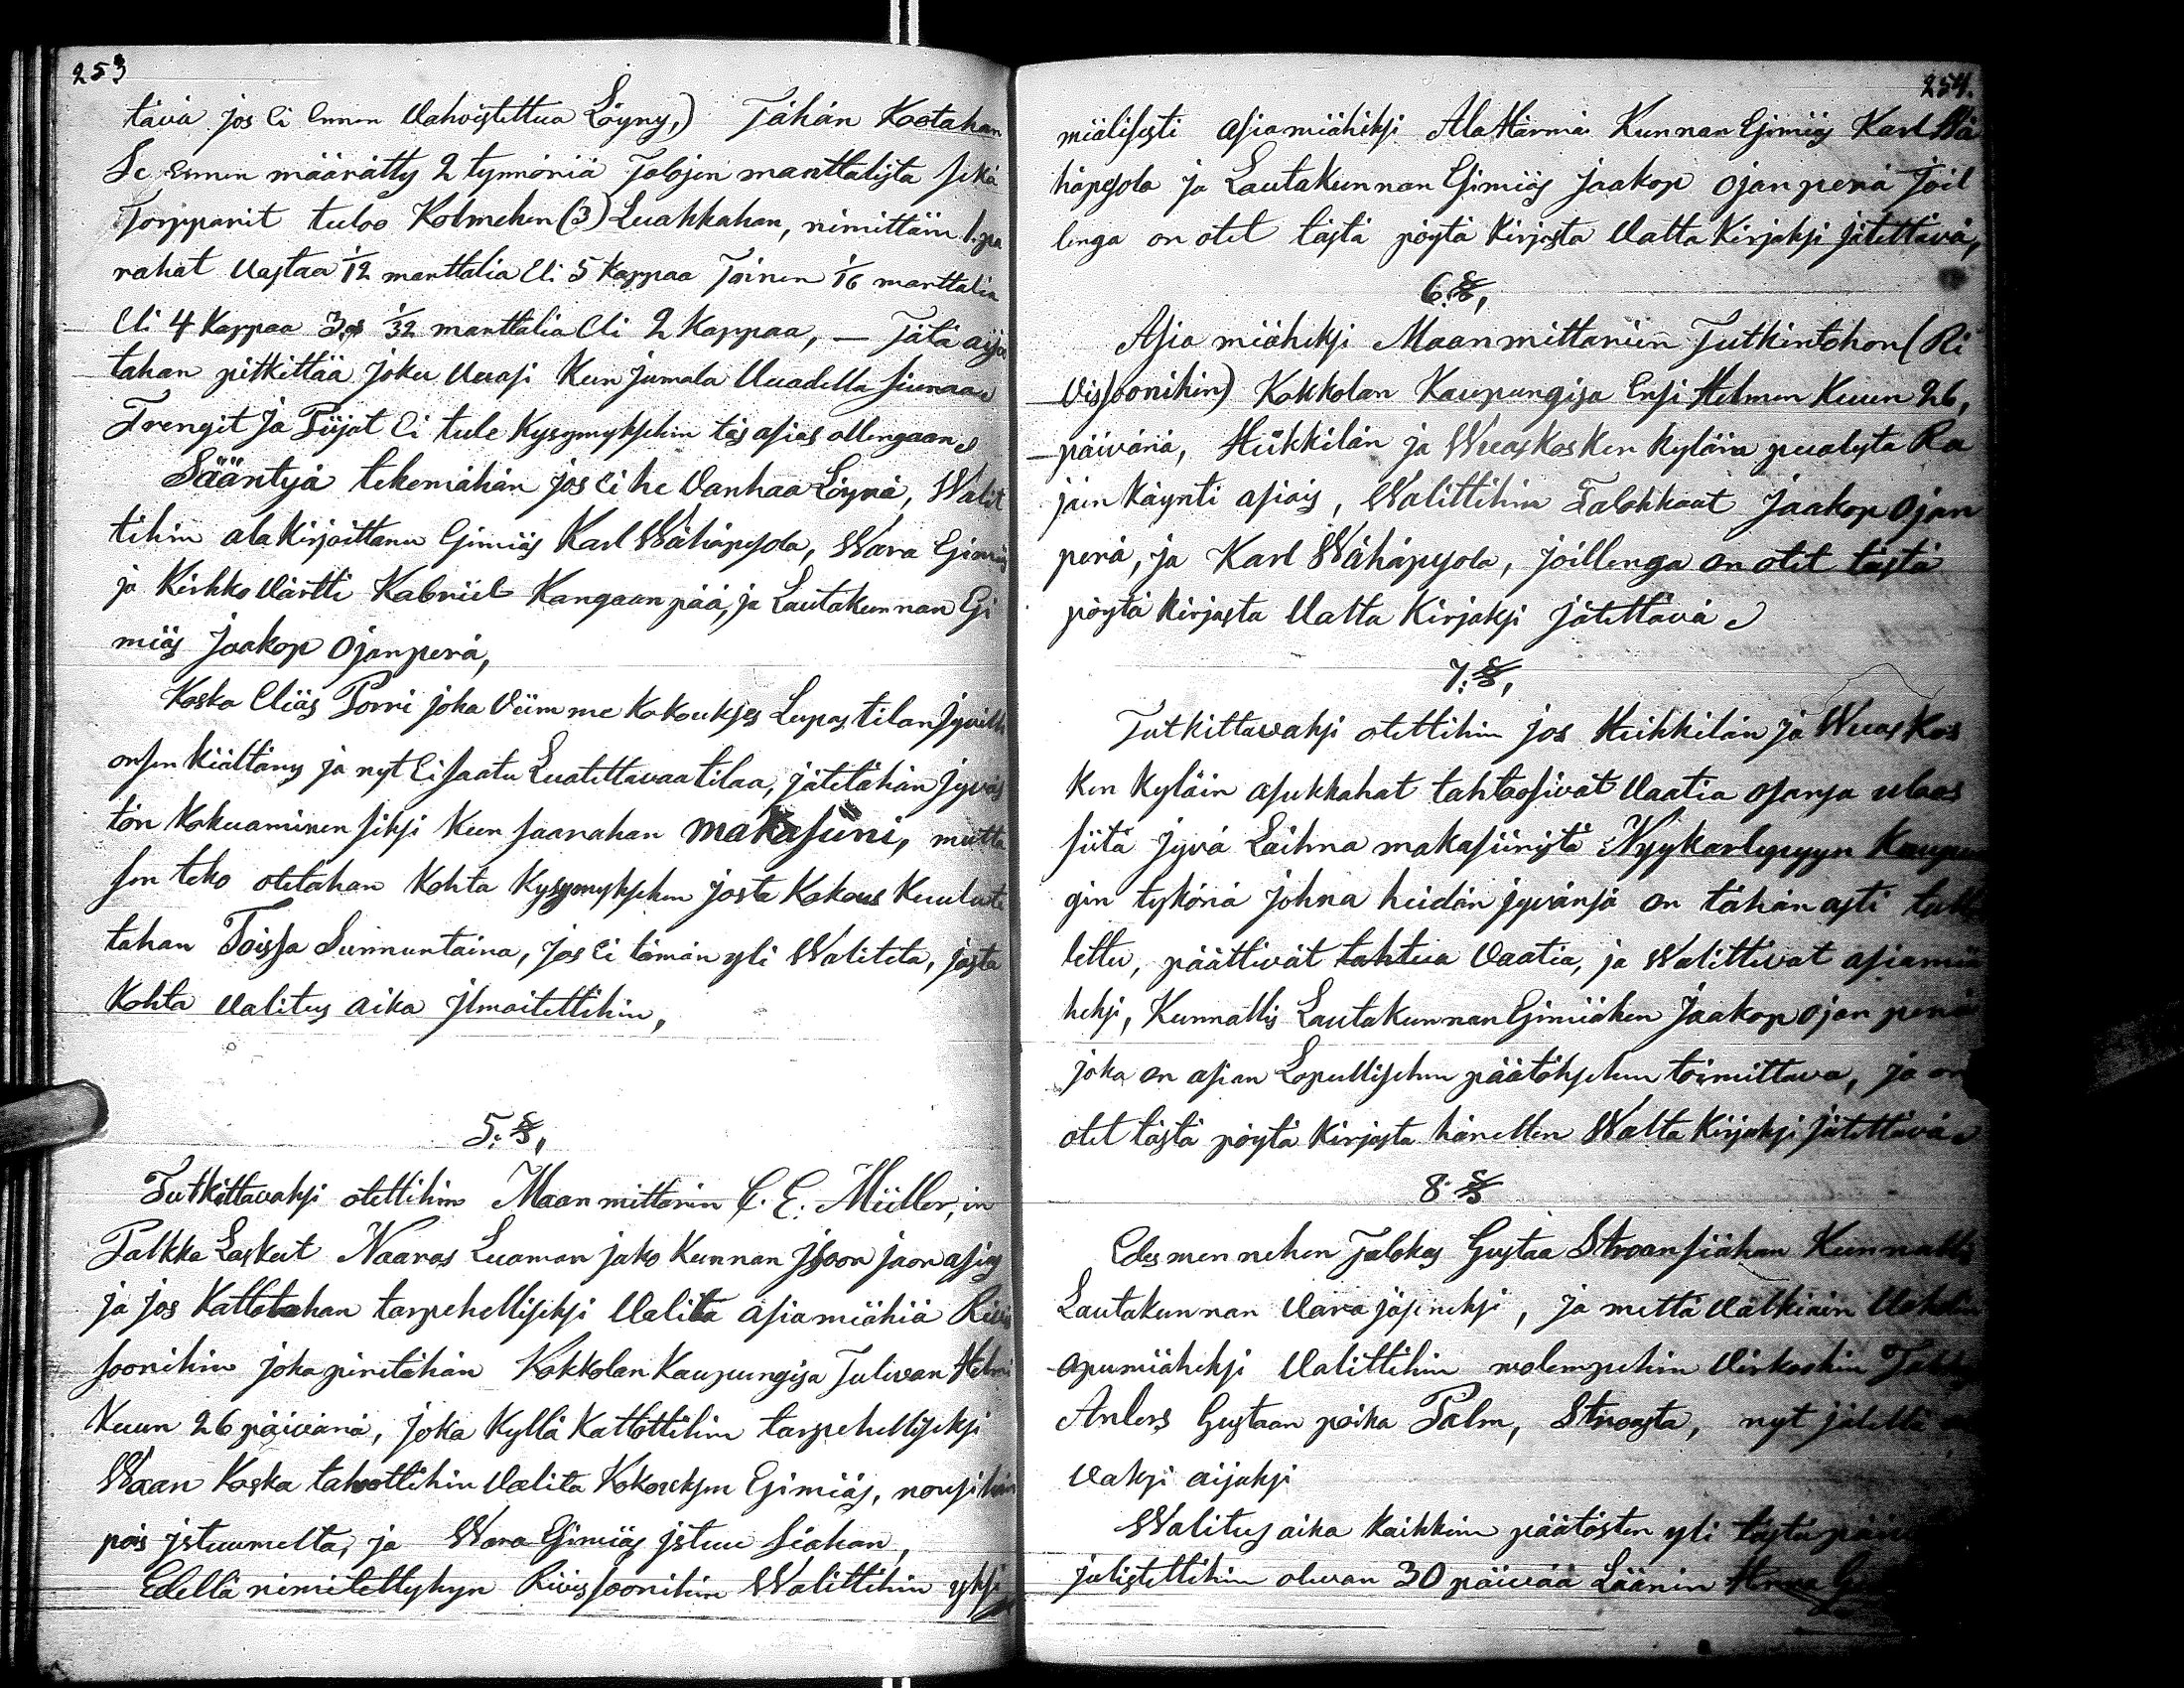 253
tävä jos Ei Ennen Vahvistettua Löyny,) Tähän Kootahan
Se Ennen määrätty 2 tynnöriä Talojen manttalista sekä
Torpparit tuloo Kolmehen (3) Luakkahan, nimittäin 1. pa
rahat Vastaa 1/12 manttalia Eli 5 kappaa Toinen 1/16 manttalia
Eli 4 Kappaa 3:s 1/32 manttalia Eli 2 Kappaa, — Tätä aijo
tahan pitkittää joku Vuasi Kun jumala Vuadella siunaa
Trengit Ja Piijat Ei tule Kysymyksehin täs asias ollengaan
Sääntyjä tekemähän jos Ei he Vanhaa Löynä, Walit
tihin ala Kirjoittanu Esimiäs Karl Wähäpesola, Wara Esimiäs
ja Kirkko Värtti Kabriel Kangaanpää, ja Lautakunnan Esi
miäs Jaakop Ojanperä,
Koska Eliäs Porri joka Viimme Kokoukses Lupas tilan Jyvill
on sen kiältäny ja nyt Ei saatu Luatettavaa tilaa, jätetähän Jyväs
tön Kokuaminen siksi Kun saarahan makasiini, mutta
sen teko otetahan Kohta Kysymyksehen josta Kokous Kuulute
tahan Toissa Sunnuntaina, jos Ei tämän yli Waliteta, josta
Kohta Valitus aika Ilmoitettihin,
5: §,
Tutkittavaksi otettihin Maan mittarin C. E. Müller, in
Palkka Laskut Naaras Luoman jako Kunnan Isoon jaon asias
ja jos Kattotahan tarpehelliseksi Valita asiamiähiä Rivis
soonihin joka piretähän Kokkolan Kaupungisa Tulevan Helmi
Kuun 26 päivänä, joka Kyllä Kattottihin tarpehelliseksi
Waan Koska tahrottihin Valita Kokouksen Esimiäs, nousi hän
pois jstuumelta, ja Wara Esimiäs jstuu siahan,
Edellä nimitettyhyn Rivissoonihin Walittihin yksi
254.
miälisesti asiamiäheksi Ala Härmä Kunnan Esimiäs Karl Wä
häpesola ja Lautakunnan Esimiäs Jaakop Ojanperä Joil
lenga on otet tästä pöytä Kirjasta Valta Kirjaksi jätettävä,
6: §,
Asia miäheksi Maanmittariin Tutkintohon (Ri
vissoonihin) Kokkolan Kaupungisa Ensi Helmen Kuun 26,
päivänä, Heikkilän ja Wuaskosken kyläin pualesta Ra
jain Käynti asiois, Walittihin Talokkaat Jaakop Ojan
perä, ja Karl Wähäpesola, joillenga on otet tästä
pöytä kirjasta Valta Kirjaksi jätettävä
7: §,
Tutkittavaksi otettihin jos Heikkilän ja Wuaskos
ken kyläin asukkahat tahtosivat Vaatia osansa ulaos
siitä jyvä Laihna makasiinistä Nyykarlepyyn Kaupun
gin tykönä johna heidän jyvänsä on tähän asti talle
lettu, päättivät tahtua Vaatia, ja walittivat asiamiä
heksi, Kunnallis Lautakunnan Esimiähen Jaakop Ojan perä
joka on asian Lopullisehen päätöksehen toimittava, ja on
otet tästä pöytä kirjasta hänellen Walta Kirjaksi jätettävä
8: §
Edesmennehen Talokas Gustaa Stroon siahan Kunnallis
Lautakunnan Vara jäseneksi, ja mettä Valkiain Vahdin
apumiäheksi Valittihin molempihin Virkoihin
Anders Gustaan poika Palm, Stroosta, nyt jälellä
vaksi aijaksi
Walitus aika kaikkiin päätösten yli tästä päiv
julistettihin olevan 30 päivää Läänin